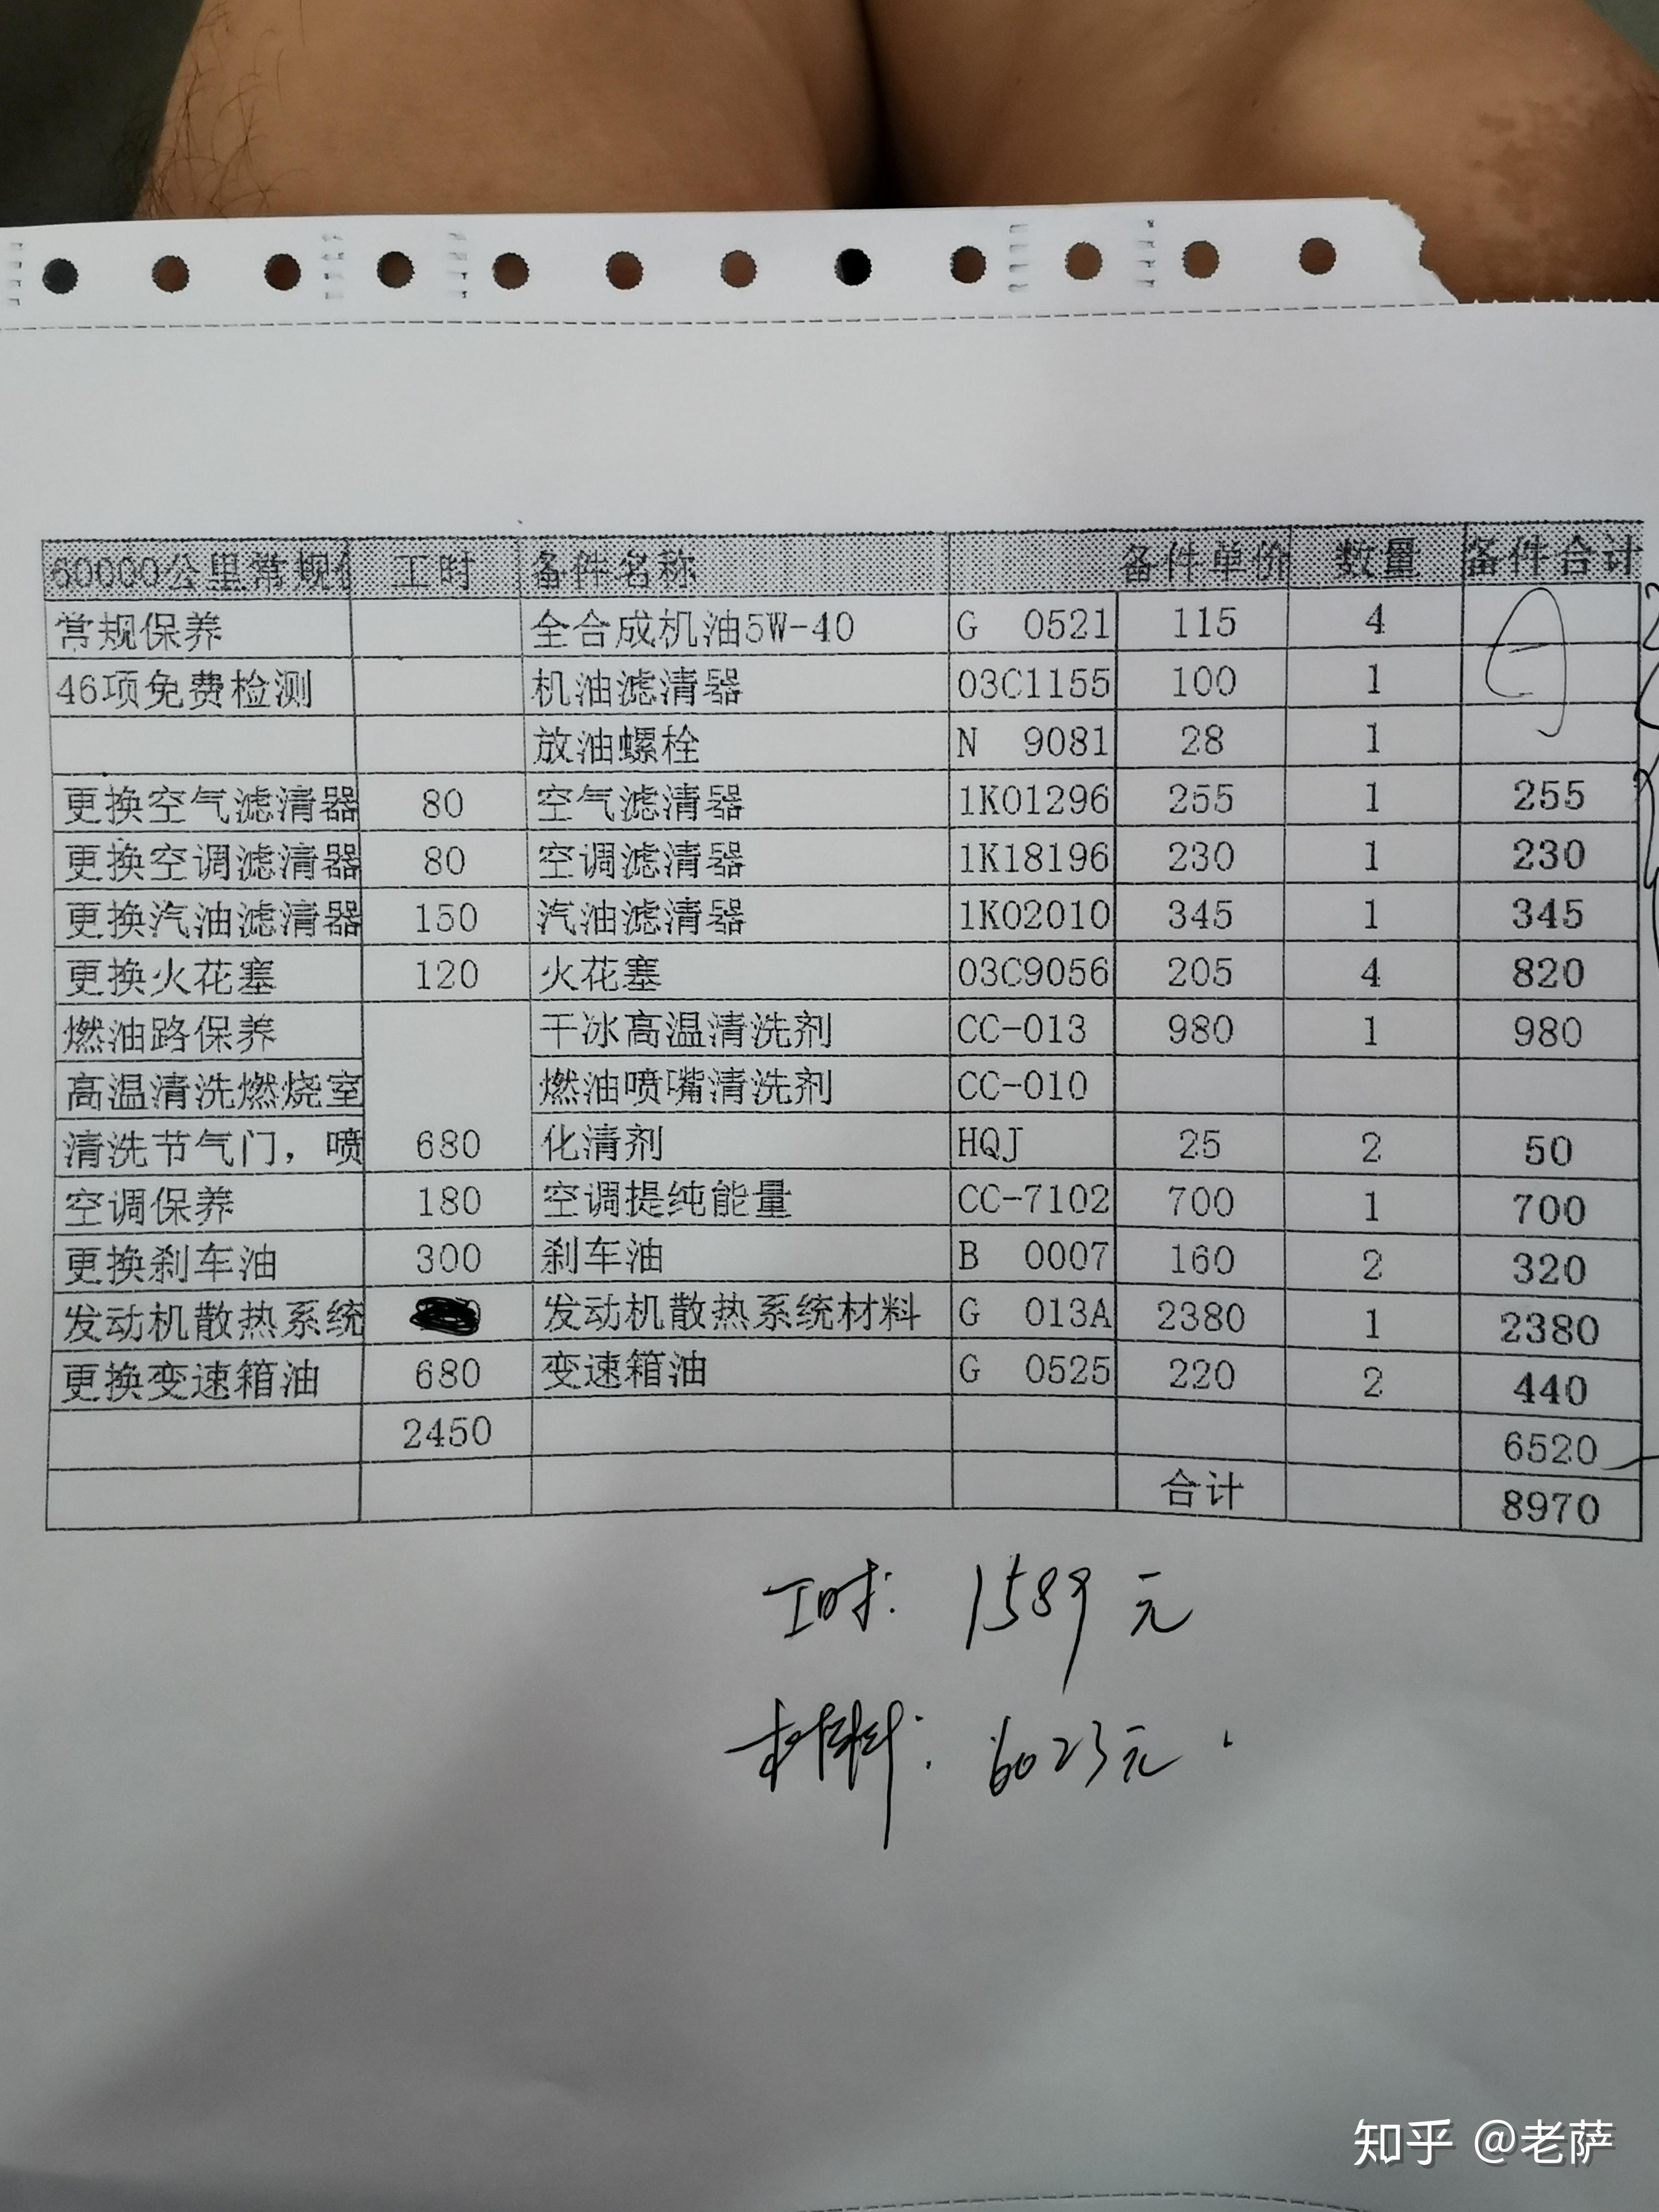 60000公里常规 工时 备件名称 备件单价 数量 备件合计
常规保养 全合成机油5W-40 G 0521 115 4
46项免费检测 机油滤清器 03C1155 100 1
放油螺栓 N 9081 28 1
更换空气滤清器 80 空气滤清器 1K01296 255 1 255
更换空调滤清器 80 空调滤清器 1K18196 230 1 230
更换汽油滤清器 150 汽油滤清器 1K02010 345 1 345
更换火花塞 120 火花塞 03C9056 205 4 820
燃油路保养 干冰高温清洗剂 CC-013 980 1 980
高温清洗燃烧室 燃油喷嘴清洗剂 CC-010
清洗节气门，喷 680 化清剂 HQJ 25 2 50
空调保养 180 空调提纯能量 CC-7102 700 1 700
更换刹车油 300 刹车油 B 0007 160 2 320
发动机散热系统 发动机散热系统材料 G 013A 2380 1 2380
更换变速箱油 680 变速箱油 G 0525 220 2 440
2450 6520
合计 8970
工时: 1589元
材料: 6023元.
知乎 @老萨